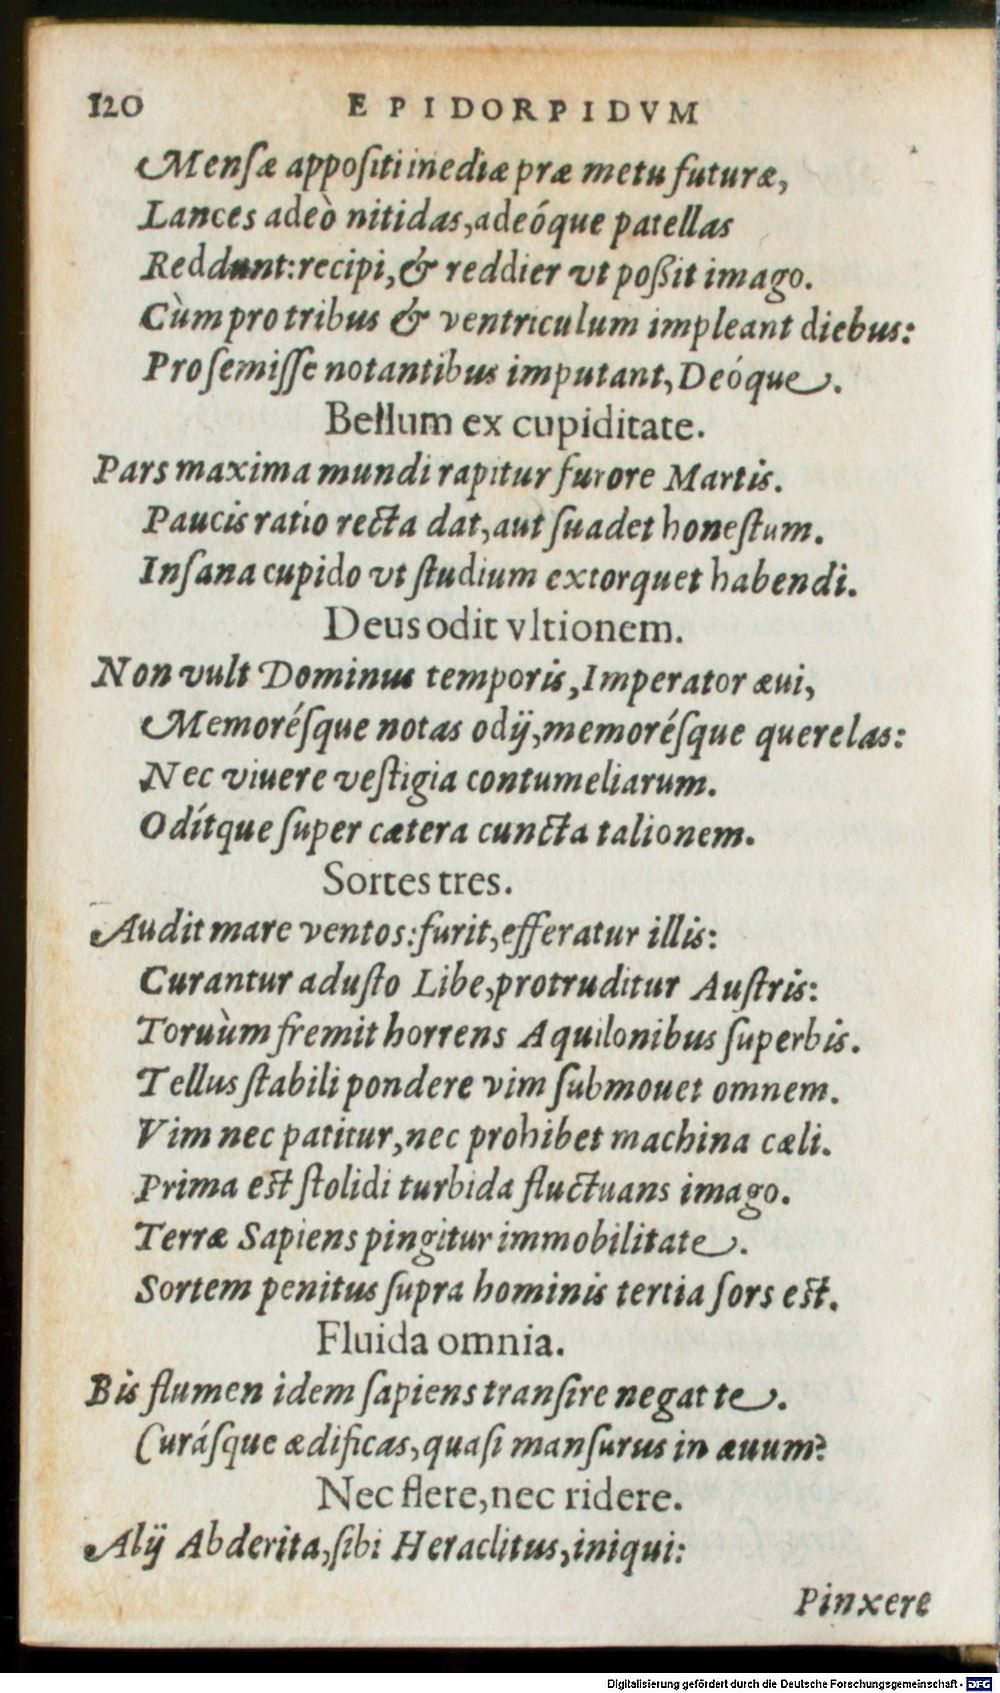 120 EPIDORPIDVM
Mensæ appositi inediæ præ metu futuræ,
Lances adeò nitidas, adeóque patellas
Reddunt: recipi, & reddier vt poßit imago.
Cùm pro tribus & ventriculum impleant diebus:
Pro semisse notantibus imputant, Deóque.
Bellum ex cupiditate.
Pars maxima mundi rapitur furore Martis.
Paucis ratio recta dat, aut suadet honestum.
Insana cupido vt studium extorquet habendi.
Deus odit vltionem.
Non vult Dominus temporis, Imperator æui,
Memorésque notas odij, memorésque querelas:
Nec viuere vestigia contumeliarum.
Odítque super cætera cuncta talionem.
Sortes tres.
Audit mare ventos: furit, efferatur illis:
Curantur adusto Libe, protruditur Austris:
Toruùm fremit horrens Aquilonibus superbis.
Tellus stabili pondere vim submouet omnem.
Vim nec patitur, nec prohibet machina cæli.
Prima est stolidi turbida fluctuans imago.
Terræ Sapiens pingitur immobilitate.
Sortem penitus supra hominis tertia sors est.
Fluida omnia.
Bis flumen idem sapiens transire negat te.
Curásque ædificas, quasi mansurus in æuum?
Nec flere, nec ridere.
Alij Abderita, sibi Heraclitus, iniqui:
Pinxere
Digitalisierung gefördert durch die Deutsche Forschungsgemeinschaft - DFG